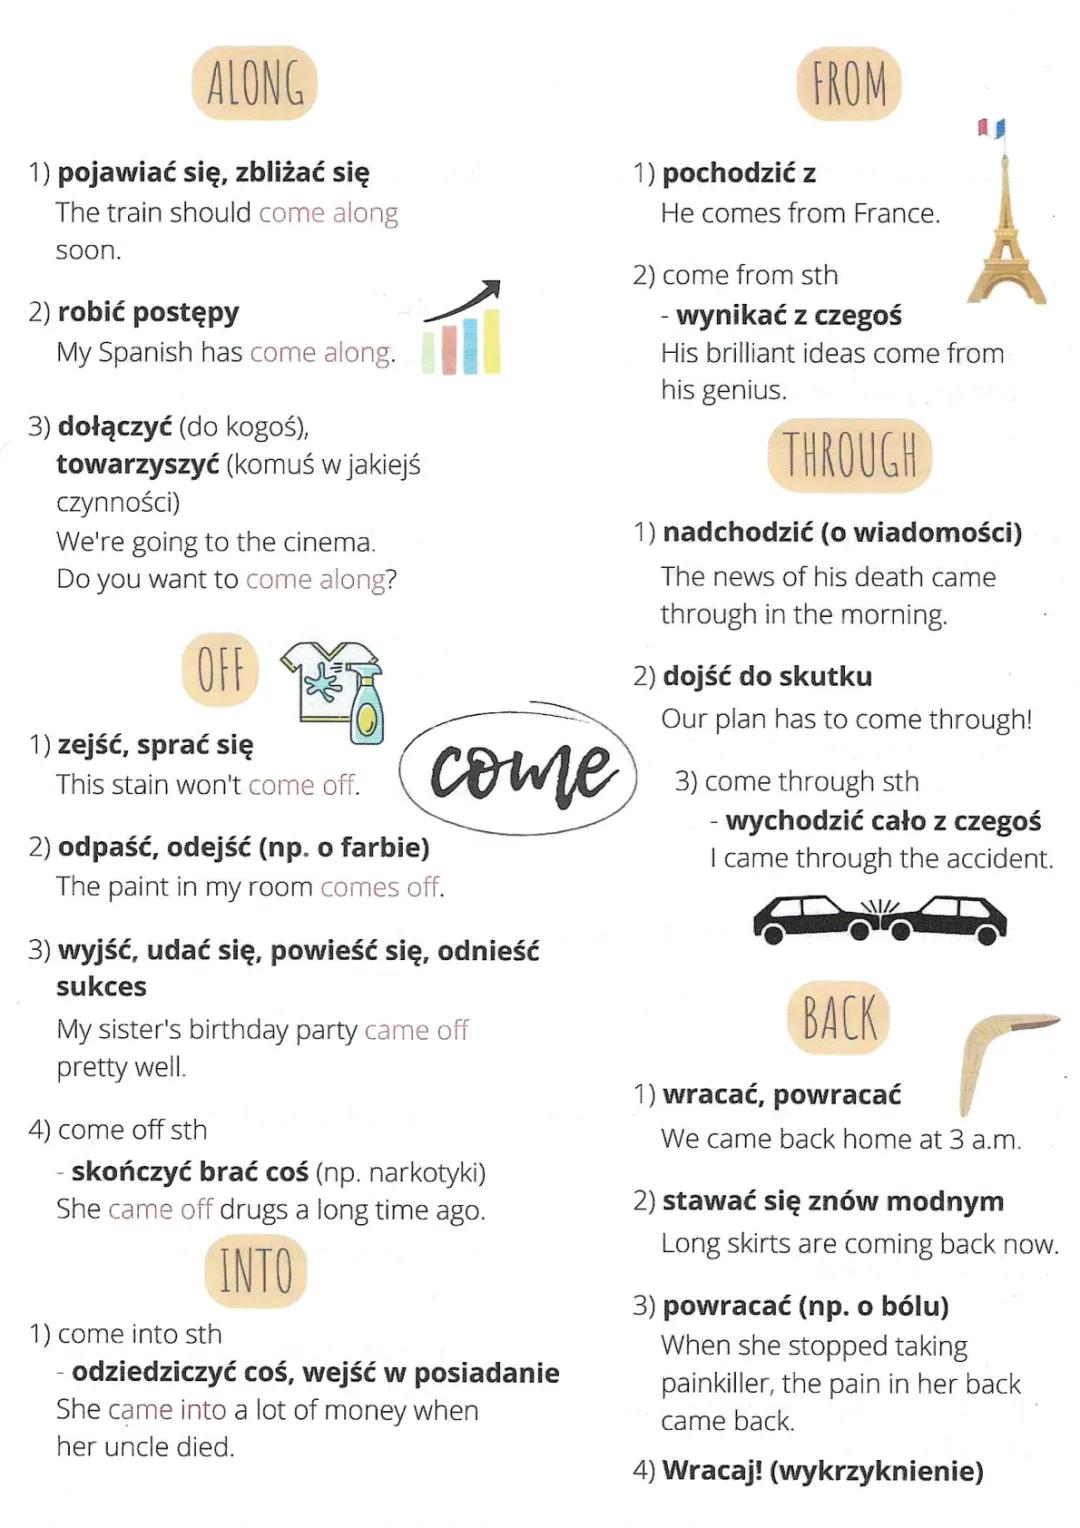 ALONG
1) pojawiać się, zbliżać się
The train should come along
soon.
2) robić postępy
My Spanish has come along.
3) dołączyć (do kogoś),
towarzyszyć (komuś w jakiejś
czynności)
We're going to the cinema.
Do you want to come along?
OFF
1) zejść, sprać się
This stain won't come off.
2) odpaść, odejść (np. o farbie)
The paint in my room comes off.
3) wyjść, udać się, powieść się, odnieść
sukces
My sister's birthday party came off
pretty well.
4) come off sth
- skończyć brać coś (np. narkotyki)
She came off drugs a long time ago.
INTO
1) come into sth
- odziedziczyć coś, wejść w posiadanie
She came into a lot of money when
her uncle died.
come
FROM
1) pochodzić z
He comes from France.
2) come from sth
- wynikać z czegoś
His brilliant ideas come from
his genius.
THROUGH
1) nadchodzić (o wiadomości)
The news of his death came
through in the morning.
2) dojść do skutku
Our plan has to come through!
3) come through sth
- wychodzić cało z czegoś
I came through the accident.
BACK
1) wracać, powracać
We came back home at 3 a.m.
2) stawać się znów modnym
Long skirts are coming back now.
3) powracać (np. o bólu)
When she stopped taking
painkiller, the pain in her back
came back.
4) Wracaj! (wykrzyknienie)